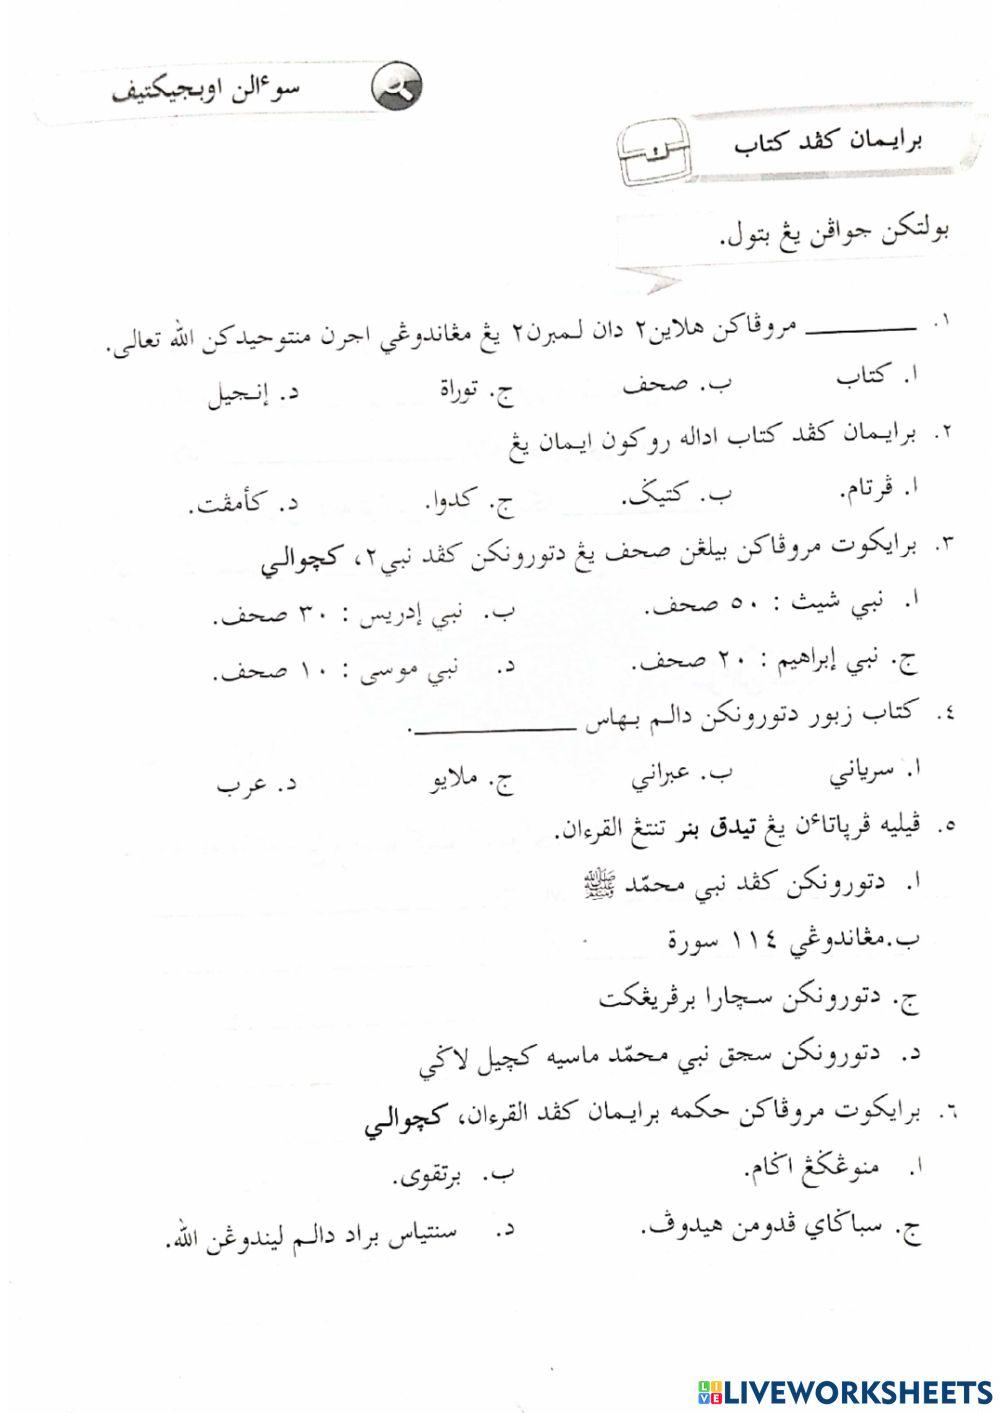 سوءالن اوبجيكتيف
برايمان كڤد كتاب
بولتكن جواڤن يڠ بتول.
١. ________ مروڤاكن هلاين٢ دان لمبرن٢ يڠ مڠاندوڠي اجرن منتوحيدكن الله تعالى.
ا. كتاب ب. صحف ج. توراة د. إنجيل
٢. برايمان كڤد كتاب اداله روكون ايمان يڠ
ا. ڤرتام. ب. كتيݢ. ج. كدوا. د. كأمڤت.
٣. برايكوت مروڤاكن بيلڠن صحف يڠ دتورونكن كڤد نبي٢، كچوالي
ا. نبي شيث : ٥٠ صحف. ب. نبي إدريس : ٣٠ صحف.
ج. نبي إبراهيم : ٢٠ صحف. د. نبي موسى : ١٠ صحف.
٤. كتاب زبور دتورونكن دالم بهاس ____________.
ا. سرياني ب. عبراني ج. ملايو د. عرب
٥. ڤيليه ڤرڽاتاءن يڠ تيدق بنر تنتڠ القرءان.
ا. دتورونكن كڤد نبي محمّد ﷺ
ب.مڠاندوڠي ١١٤ سورة
ج. دتورونكن سچارا برڤريڠكت
د. دتورونكن سجق نبي محمّد ماسيه كچيل لاݢي
٦. برايكوت مروڤاكن حكمه برايمان كڤد القرءان، كچوالي
ا. منوڠݢڠ اݢام. ب. برتقوى.
ج. سباݢاي ڤدومن هيدوڤ. د. سنتياس براد دالم ليندوڠن الله.
LIVEWORKSHEETS